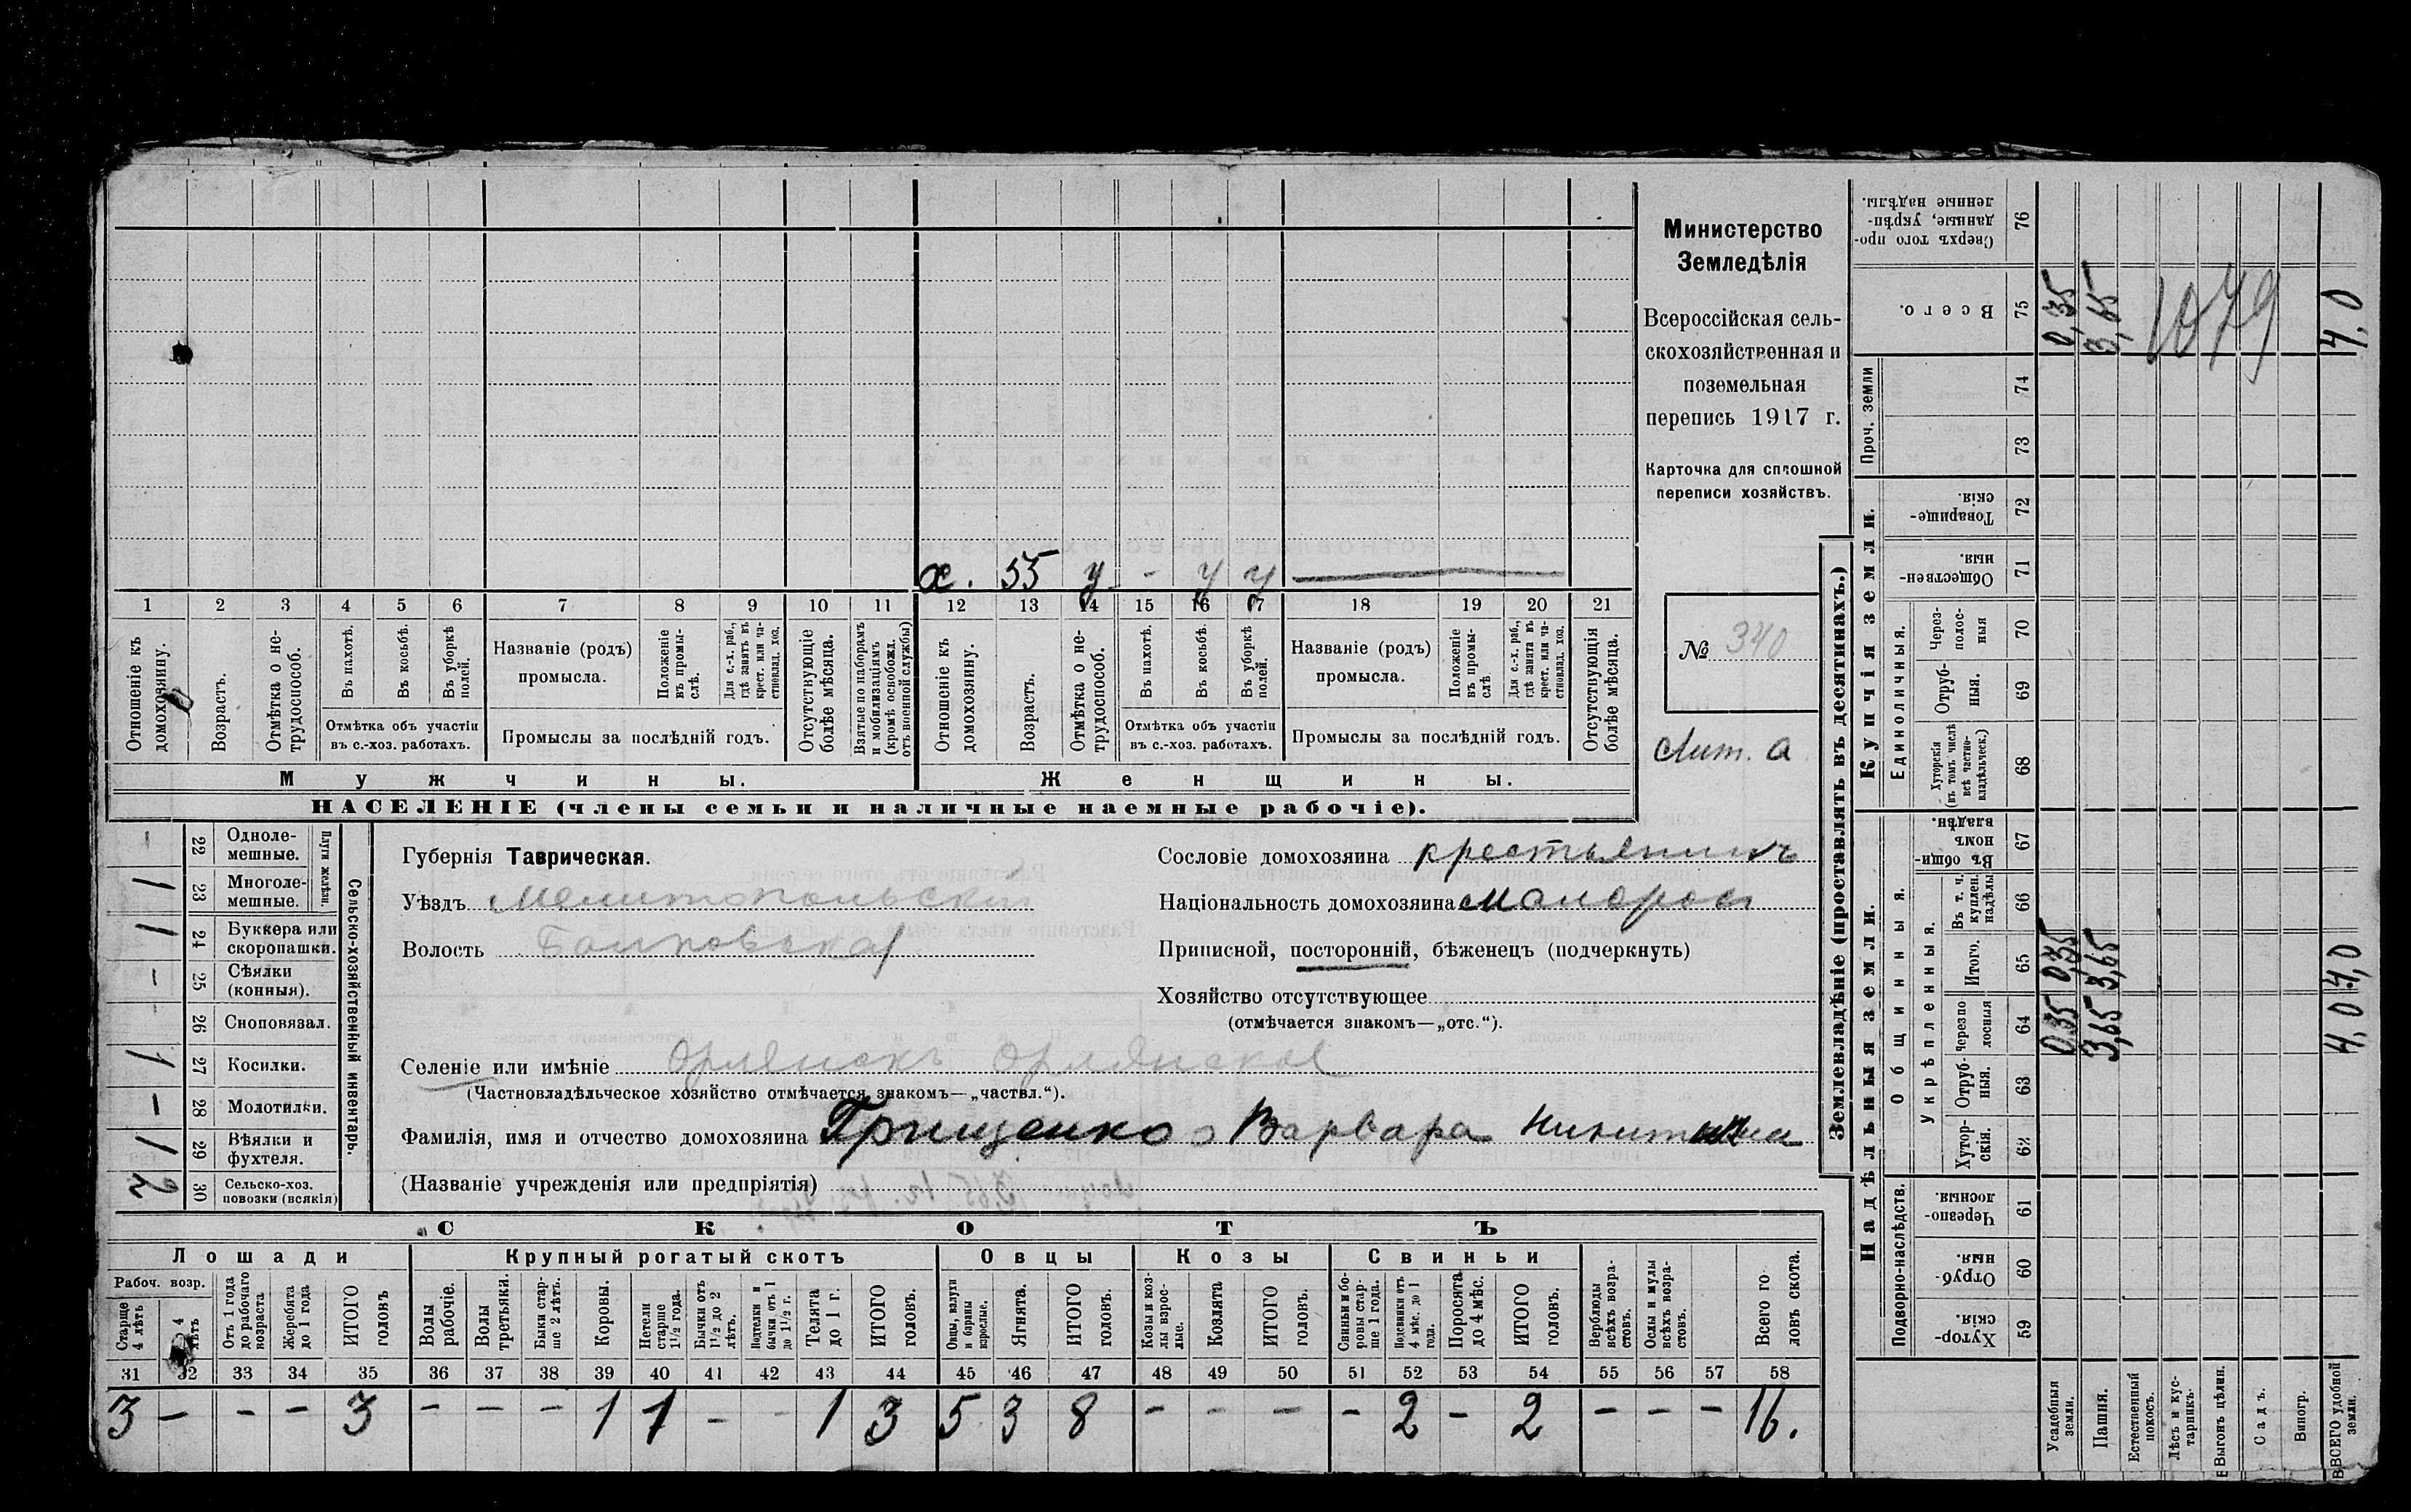 Министерство
Земледѣлія
Всероссійская сель-
скохозяйственная и
поземельная
перепись 1917 г.
Карточка для сплошной
переписи хозяйствъ.
№ 340
Лит. а
х. 55 у - у у
1 2 3 4 5 6 7 8 9 10 11 12 13 14 15 16 17 18 19 20 21
Отношеніе къ домохозяину.
Возрастъ.
Отмѣтка о не-трудоспособ.
Въ пахотѣ.
Въ косьбѣ.
Въ уборкѣ полей.
Отмѣтка объ участіи въ с.-хоз. работахъ.
Названіе (родъ) промысла.
Положеніе въ промы-слѣ.
Для с.-х. раб., гдѣ занятъ въ крест. или ча-стновлад. хоз.
Промыслы за послѣдній годъ.
Отсутствующіе болѣе мѣсяца.
Взятые по наборамъ и мобилизаціямъ (кромѣ освобожд. отъ военной службы)
Отношеніе къ домохозяину.
Возрастъ.
Отмѣтка о не-трудоспособ.
Въ пахотѣ.
Въ косьбѣ.
Въ уборкѣ полей.
Отмѣтка объ участіи въ с.-хоз. работахъ.
Названіе (родъ) промысла.
Положеніе въ промы-слѣ.
Для с.-х. раб., гдѣ занята въ крест. или ча-стновлад. хоз.
Промыслы за послѣдній годъ.
Отсутствующія болѣе мѣсяца.
Мужчины.
Женщины.
НАСЕЛЕНІЕ (члены семьи и наличные наемные рабочіе).
Сельско-хозяйственный инвентарь.
Плуги желѣзн.
- 22 Одноле-мешные.
1 23 Многоле-мешные.
1 24 Буккера или скоропашки.
- 25 Сѣялки (конныя).
- 26 Сноповязал.
1 27 Косилки.
- 28 Молотилки.
1 29 Вѣялки и фухтеля.
2 30 Сельско-хоз. повозки (всякія)
Губернія Таврическая.
Уѣздъ Мелитопольскій
Волость
Сословіе домохозяина крестьянинъ
Національность домохозяина малоросъ
Приписной, посторонній, бѣженецъ (подчеркнуть)
Хозяйство отсутствующее
(отмѣчается знакомъ—„отс.“).
Селеніе или имѣніе Орлянскъ Орлянское
(Частновладѣльческое хозяйство отмѣчается знакомъ—„частвл.“).
Фамилія, имя и отчество домохозяина Грищенко Варвара Никитична
(Названіе учрежденія или предпріятія)
СКОТЪ
Лошади Крупный рогатый скотъ Овцы Козы Свиньи
Рабоч. возр.
Старше 4 лѣтъ
4 лѣтъ
Отъ 1 года до рабочаго возраста
Жеребята до 1 года
ИТОГО головъ
Волы рабочіе.
Волы третьяки.
Быки стар-ше 2 лѣтъ.
Коровы.
Нетели старше 1½ года.
Бычки отъ 1½ до 2 лѣтъ.
Подтелки и бычки отъ 1 до 1½ г.
Телята до 1 г.
ИТОГО головъ.
Овцы, валухи и бараны взрослые.
Ягнята.
ИТОГО головъ.
Козы и коз-лы взрос-лые.
Козлята
ИТОГО головъ.
Свиньи и бо-ровы стар-ше 1 года.
Подсвинки отъ 4 мѣс. до 1 года.
Поросята до 4 мѣс.
ИТОГО головъ.
Верблюды всѣхъ возра-стовъ.
Ослы и мулы всѣхъ возра-стовъ.
Всего го ловъ скота.
31 32 33 34 35 36 37 38 39 40 41 42 43 44 45 46 47 48 49 50 51 52 53 54 55 56 57 58
3 - - - 3 - - - 1 1 - - 1 3 5 3 8 - - - - 2 - 2 - - - 16.
Землевладѣніе (проставлять въ десятинахъ.)
Надѣльныя земли.
Купчія земли.
Проч. земли
Подворно-наслѣдств.
Общинныя.
Укрѣпленныя.
Единоличныя.
59 Хутор-скія.
60 Отруб-ныя.
61 Черезпо-лосныя.
62 Хутор-скія.
63 Отруб-ныя.
64 Черезпо лосныя
65 Итого.
66 Въ т. ч. куплен. надѣлы
67 Въ общи-номъ владѣн.
68 Хуторскія (въ томъ числѣ всѣ частно-владѣльческ.)
69 Отруб-ныя.
70 Через-полос-ныя
71 Обществен-ныя.
72 Товарище-скія.
73
74
75 Всего.
76 Сверхъ того про-данные, укрѣп-ленные надѣлы.
Усадебныя земли. 0,35 0,35 0,35
Пашня. 3,65 3,65 3,65
Естественный покосъ.
Лѣсъ и кус-тарникъ.
Выгонъ цѣлин.
Садъ.
Виногр.
ВСЕГО удобной земли. 4,0 4,0 4,0
1079